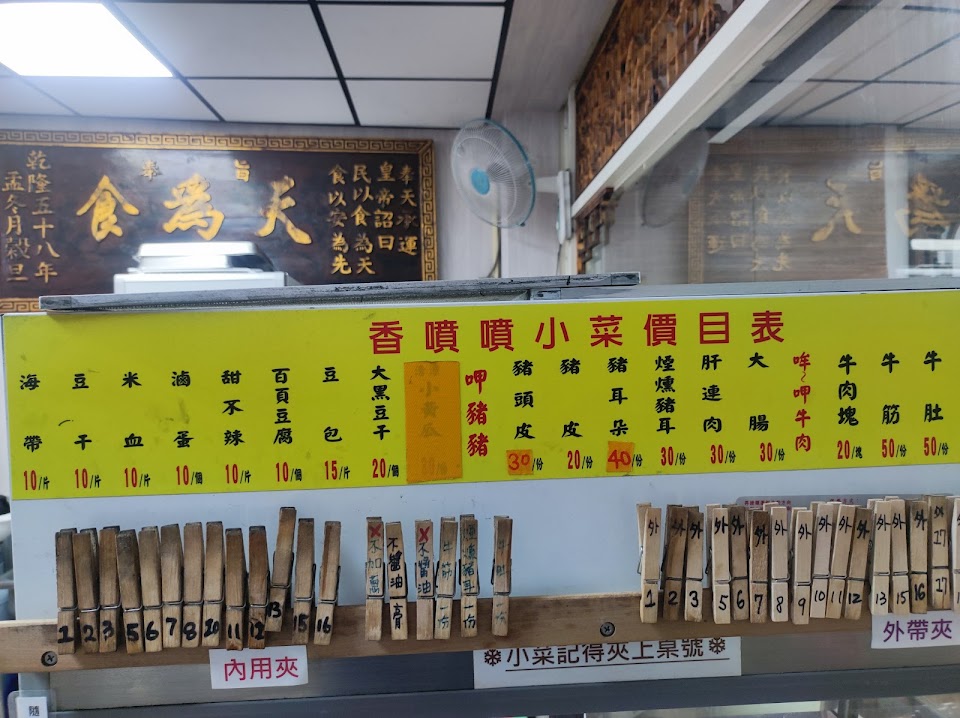 奉旨
天為食
奉天承運
皇帝詔曰
民以食為天
食以安為先
乾隆五十八年
孟冬月穀旦
香噴噴小菜價目表
海帶 10/片
豆干 10/片
米血 10/片
滷蛋 10/個
甜不辣 10/片
百頁豆腐 10/個
豆包 15/片
大黑豆干 20/個
小黃瓜
呷豬豬
豬頭皮 30/份
豬皮 20/份
豬耳朵 40/份
煙燻豬耳 30/份
肝連肉 30/份
大腸 30/份
哞~呷牛肉
牛肉塊 20/塊
牛筋 50/份
牛肚 50/份
1 2 3 5 6 7 8 10 11 12 13 15 16
X不加蔥
不醬油膏
X不醬油
牛筋一份
煙燻豬耳一份
外1 外2 外3 外5 外6 外7 外8 外9 外10 外11 外12 外13 外15 外16 外17
內用夾
小菜記得夾上桌號
外帶夾
隨